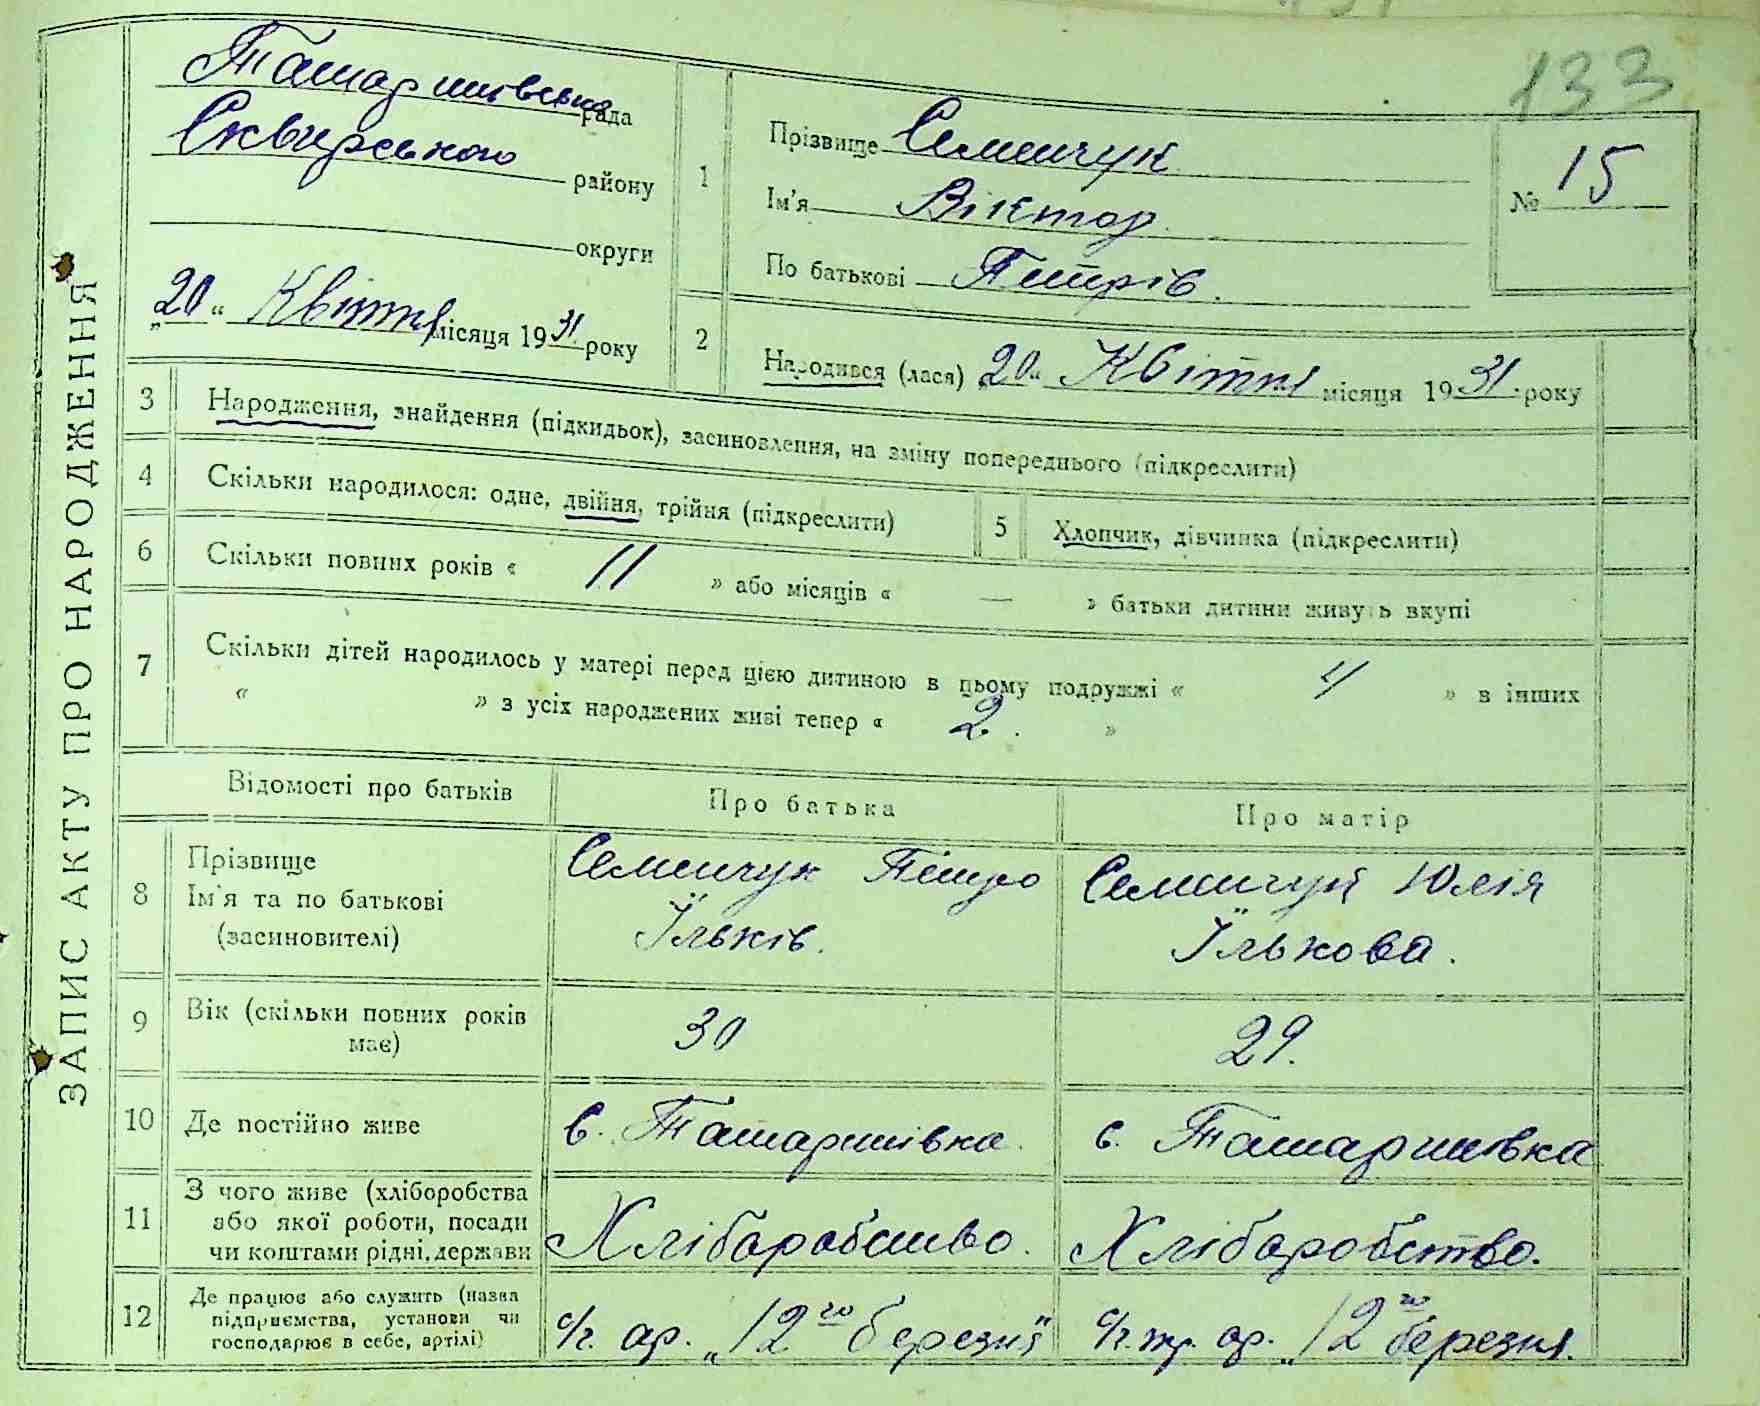 133
ЗАПИС АКТУ ПРО НАРОДЖЕННЯ
Татаринівська рада
Сквирського району
округи
„20“ Квітня місяця 1931 року
1
Прізвище Семенчук
Ім'я Віктор
По батькові Петрів.
№ 15
2
Народився (лася) 20“ Квітня місяця 1931 року
3 Народження, знайдення (підкидьок), засиновлення, на зміну попереднього (підкреслити)
4 Скільки народилося: одне, двійня, трійня (підкреслити)
5 Хлопчик, дівчинка (підкреслити)
6 Скільки повних років « 11 » або місяців « — » батьки дитини живуть вкупі
7 Скільки дітей народилось у матері перед цією дитиною в цьому подружжі « 4 » в інших
« » з усіх народжених живі тепер « 2. »
Відомості про батьків Про батька Про матір
8 Прізвище
Ім'я та по батькові
(засиновителі)
Семенчук Петро
Їльків.
Семенчук Юлія
Їлькова.
9 Вік (скільки повних років
має)
30
29.
10 Де постійно живе
с. Татаринівка.
с. Татаринівка
11 З чого живе (хліборобства
або якої роботи, посади
чи коштами рідні, держави
Хліборобство.
Хліборобство.
12 Де працює або служить (назва
підприємства, установи чи
господарює в себе, артілі)
с/г. ар. „12го березня"
ар. „12го березня.